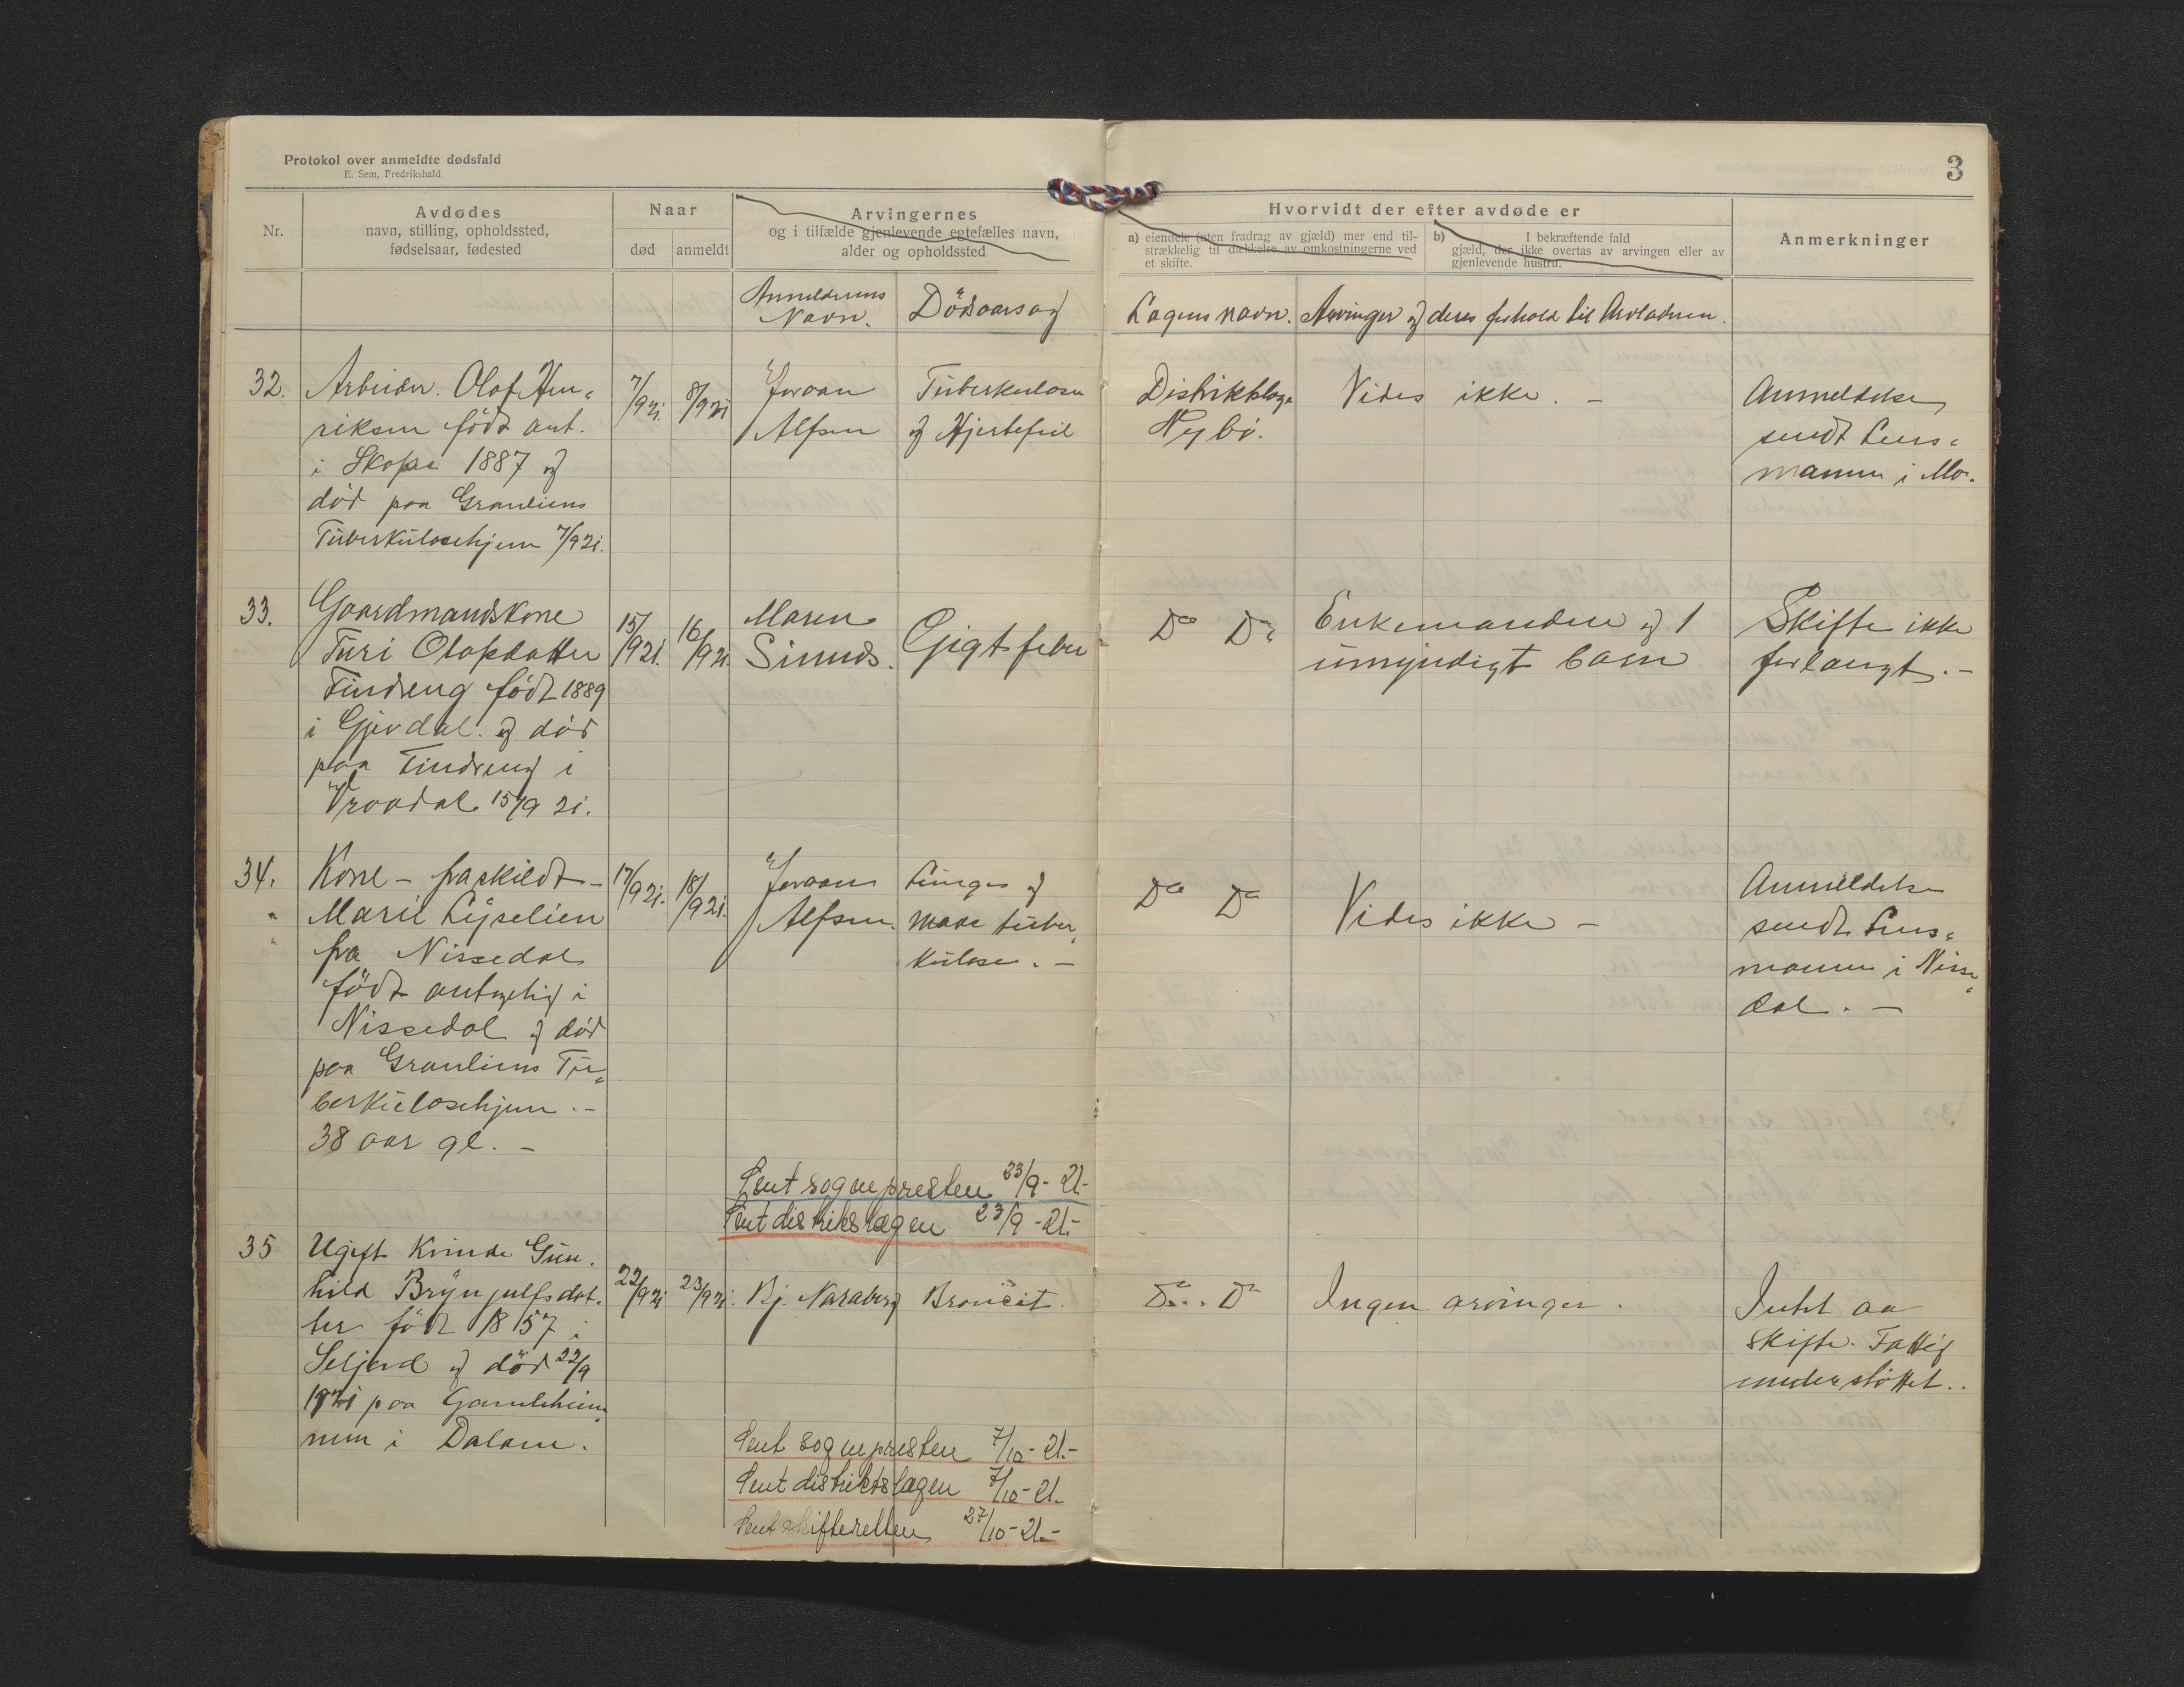 Protokol over anmeldte dødsfald
E. Sem, Fredrikshald
3
Nr.
Avdødes
navn, stilling, opholdssted,
fødselsaar, fødested
Naar
død
anmeldt
Arvingernes
og i tilfælde gjenlevende egtefælles navn,
alder og opholdssted
Hvorvidt der efter avdøde er
a) eiendele (uten fradrag av gjæld) mer end til-
strækkelig til dækkelse av omkostningerne ved
et skifte.
b) I bekræftende fald
gjæld, der ikke overtas av arvingen eller av
gjenlevende hustru.
Anmerkninger
Anmelderens
Navn.
Dödsaarsag
Lægens navn.
Arvinger og deres forhold til Avdøde
32.
Arbeider. Olof Hen-
riksen född ant.
i 1887 og
död paa Granliens
Tuberkulosehjem 7/9 21.
7/9 21.
8/9 21
Joraan
Alfsen
Tuberkulose
og Hjertefeil
Distriktslæge
Nybö.
Vides ikke. –
Anmeldelse
sendt Lens-
manden i Mo.
33.
Gaardmandskone
Turi Olafsdatter
Tindreng född 1889
i Gjevdal. og död
paa Tindreng i
Vraadal 15/9 21.
15/9 21.
16/9 21.
Maren
Simnds.
Gigtfeber
Do Do
Enkemanden og 1
umyndigt barn
Skifte ikke
forlangt. –
34.
Kone – fraskildt –
Marie Lijselien
fra Nissedal
född antagelig i
Nissedal og död
paa Granliens Tu-
berkulosehjem. –
38 aar gl. –
17/9 21.
18/9 21.
Joraan
Alfsen.
Lunge og
mave tuber-
kulose. –
Do Do
Vides ikke –
Anmeldelse
sendt Lens-
manden i Nisse-
dal. –
Sent sognepresten 23/9 - 21-
Sent distrikslægen 23/9 - 21.-
35
Ugift Kvinde Gun-
hild Brynjulfsdat-
ter född 1857 i
Seljord og död 22/9
1921 paa Gamleheim-
men i Dalane.
22/9 21
23/9 21.
Bj. Naraberg
Broncit.
Do.. Do
Ingen arvinger.
Intet aa
skifte. Fattig
understöttet..
Sent sognepresten 7/10 - 21.-
Sent distriktslægen 7/10 - 21.
Sent skifteretten 27/10 - 21.-